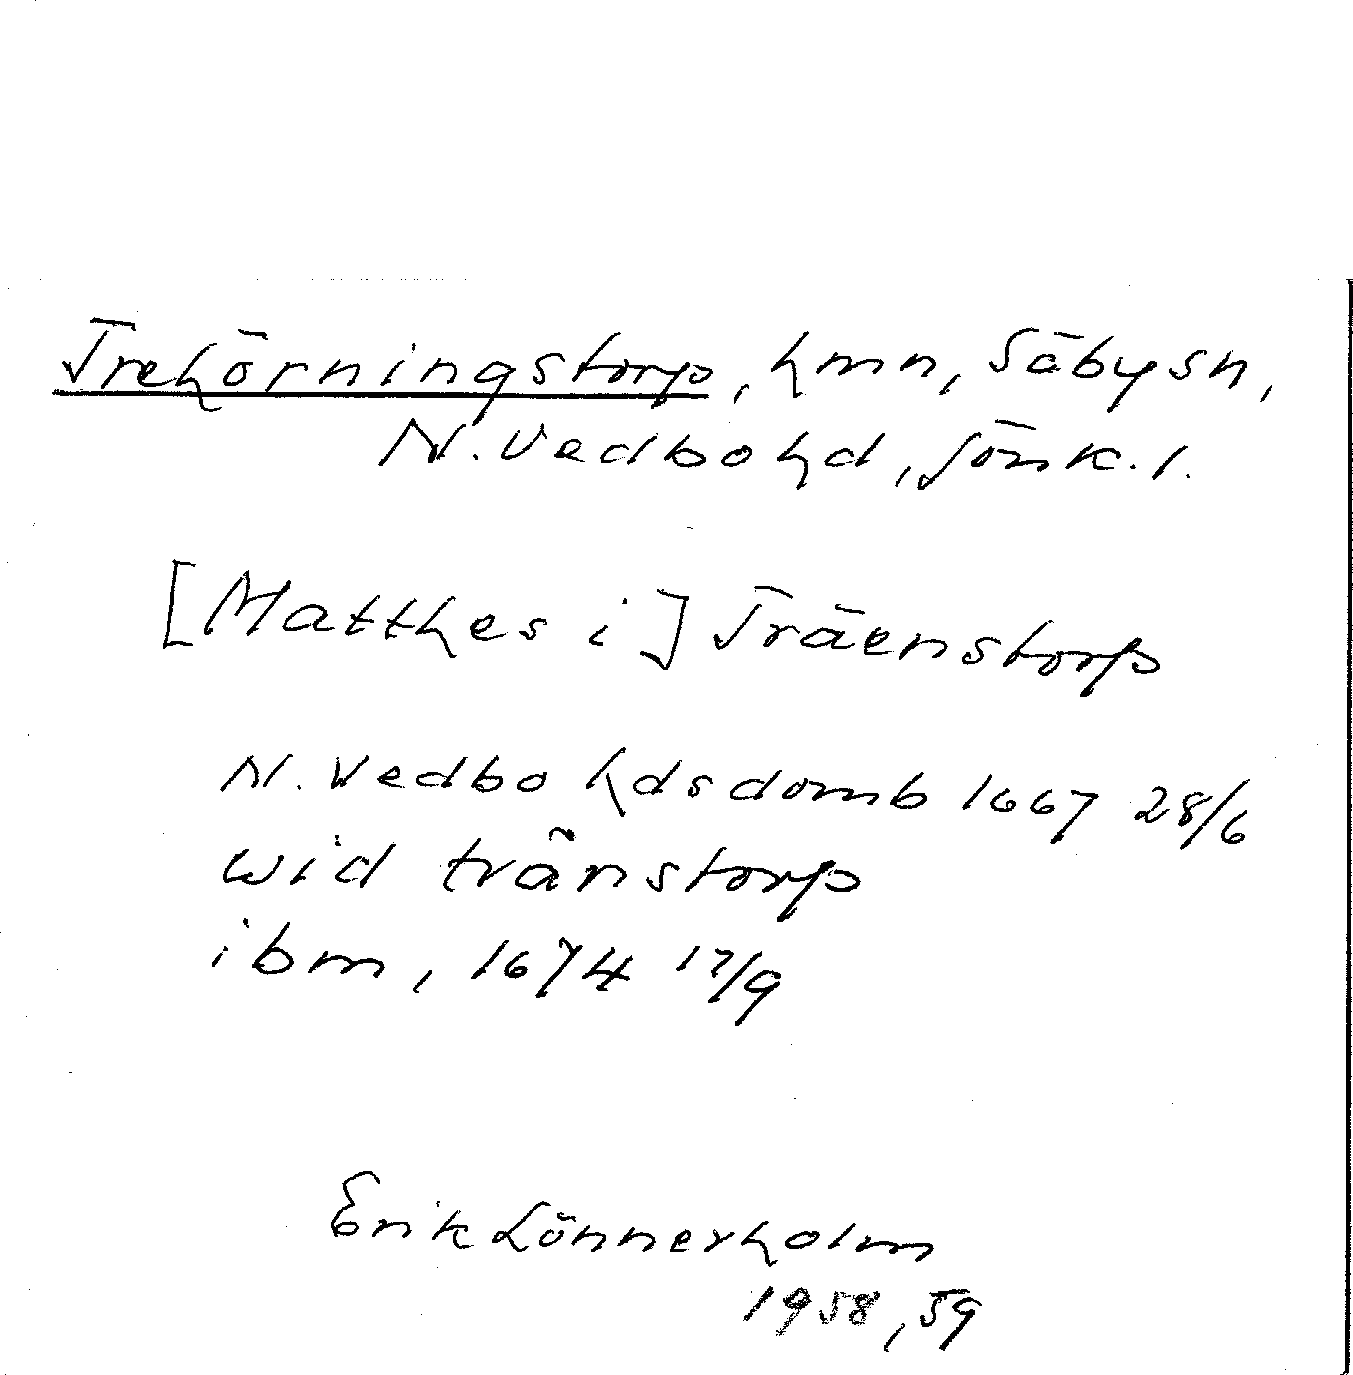 Trehörningstorp, hmn, Säby sn,
N. Vedbo hd, Jönk. l.
[Matthes i] Träenstorp
N. Vedbo hds domb 1667 28/6
wid tränstorp
ibm, 1674 17/9
Erik Lönnerholm
1958, 59